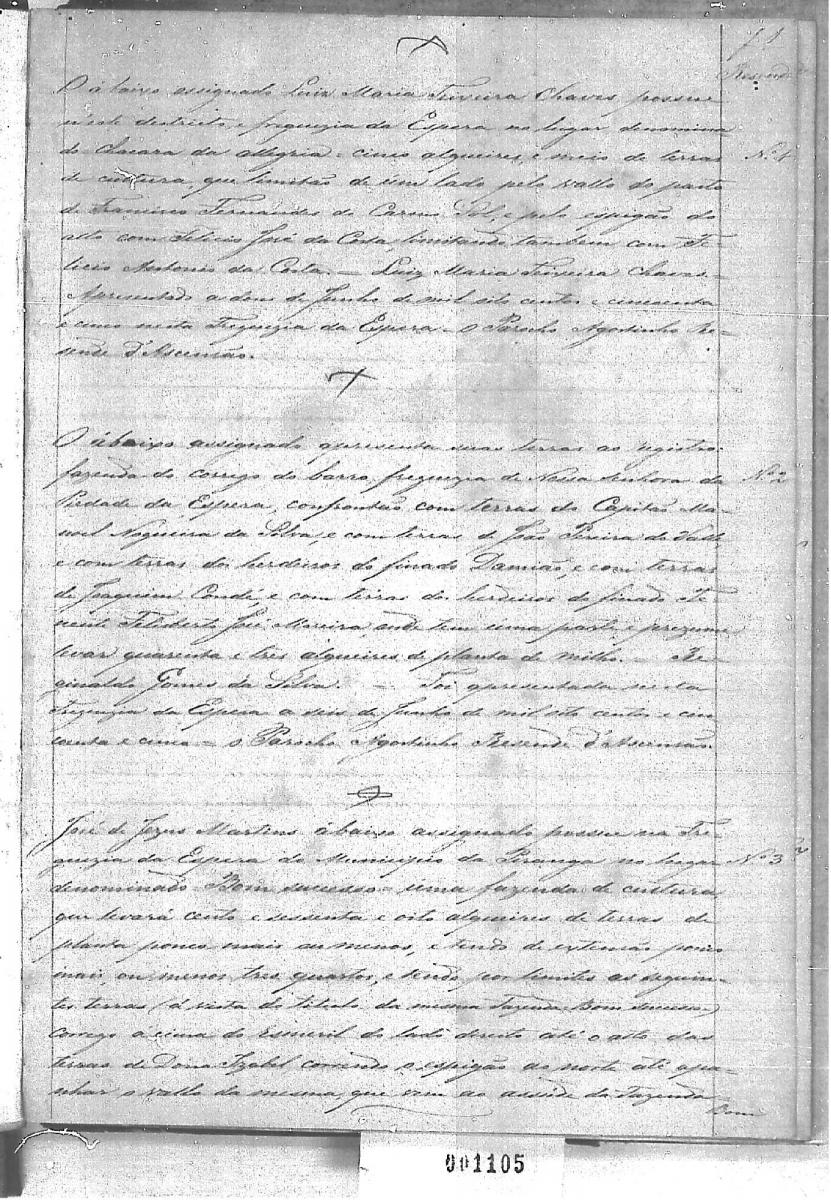 f. 1
Resende
O ábaixo assignado Luiz Maria Teixeira Chaves possue
n'este destricto, e freguezia da Espera no lugar denomina
do Chacara da allegria - cinco alqueires, e meio de terras
Nº 1
de cultura, que limitão de úm lado pelo vallo do pasto
de Francisco Fernandes do Carmo Sol, e pelo espigão do
alto com Felicio José da Costa limitando tambem com Fe-
licio Antonio da Costa. — Luiz Maria Teixeira Chaves.
Apresentado a dous de Junho de mil oito centos e cincoenta
e cinco nesta Freguezia da Espera - O Parocho Agostinho Re-
sende d'Ascensão.
O ábaixo assignado apresenta suas terras ao registro
fazenda do corrigo do barro, freguezia de Nossa Senhora da
Nº 2
Piedade da Espera, confrontão com terras do Capitão Ma-
noel Nogueira da Silva, e com terras de João Pereira do Valle,
e com terras dos herdeiros do finado Damião, e com terras
de Joaquim Condé, e com terras dos herdeiros do finado Te-
nente Feliberto José Moreira, onde tem uma parte, e prezume
levar quarenta e tres alqueires de planta de milho. — Re-
ginaldo Gomes da Silva. — Foi apresentada nesta
Freguezia da Espera a seis de Junho de mil oito centos e cin
coenta e cinco - O Parocho Agostinho Resende d'Ascensão
José de Jezus Martins ábaixo assignado possue na Fre-
guezia da Espera do Municipio da Piranga no lugar
Nº 3
denominado - Bom sucesso - uma fazenda de cultura
que levará cento e sessenta e oito alqueires de terras de
planta pouco mais ou menos, e tendo de extensão pouco
mais, ou menos tres quartos, e tendo por limites as seguin-
tes terras (á vista do titulo da mesma Fazenda Bom sucesso)
Corrego a cima do Esmeril do lado direito até o alto das
terras de Dona Izabel correndo o espigão ao norte até apa-
nhar o vallo da mesma, que vem ao assude da Fazenda
Bom
001105